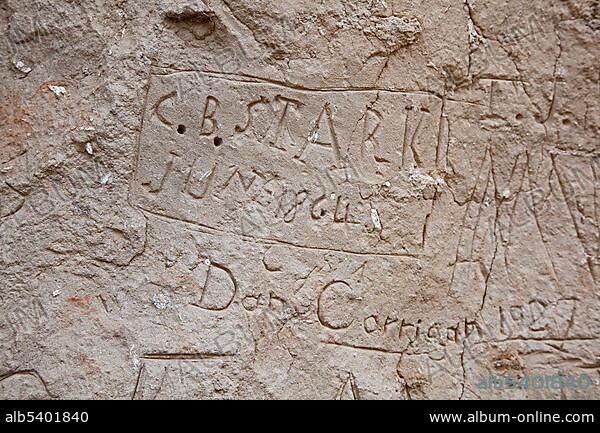 C. B. STARK
JUNE 1864
Dan Corrigan 192
alb5401840
alb5401840
www.album-online.com